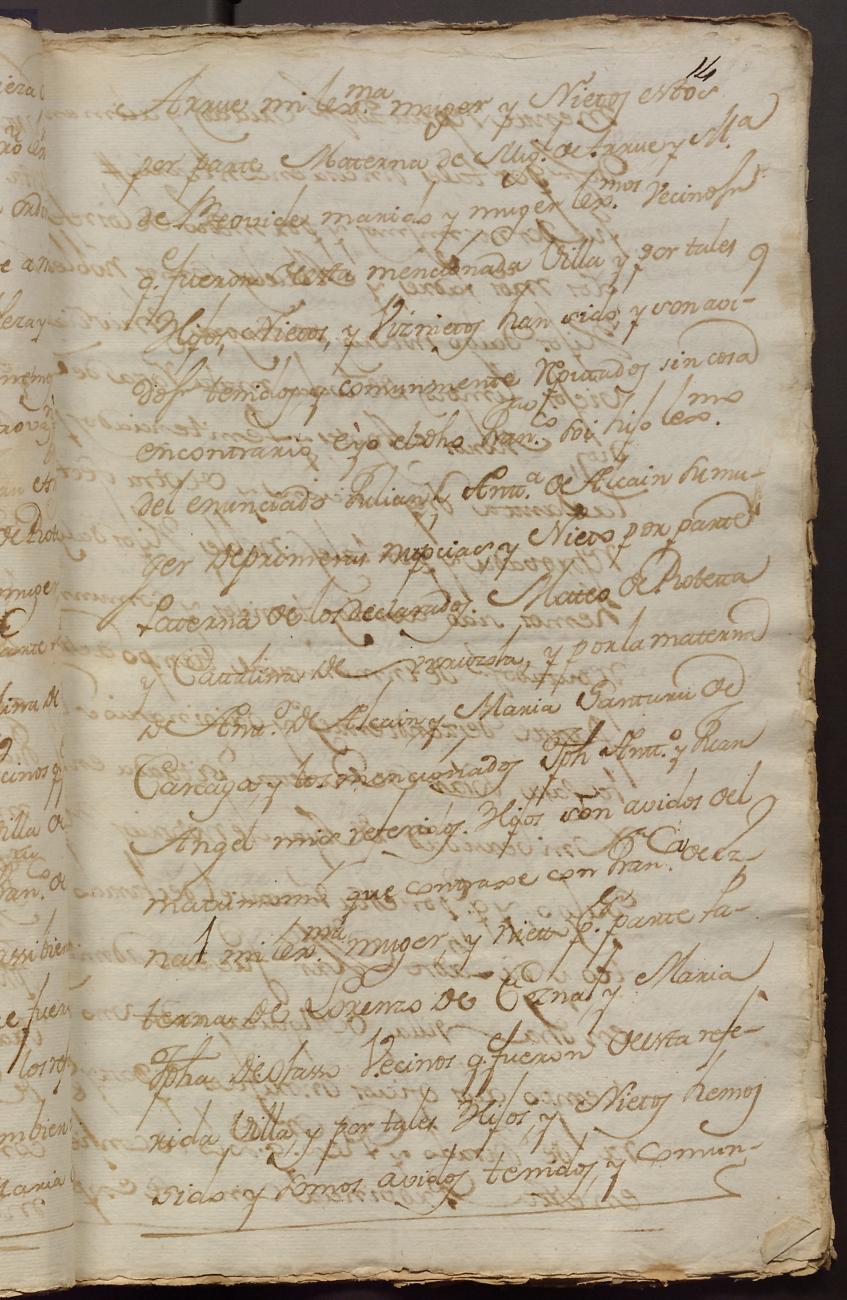 14
Arrue mi lex.ma muger y Nietos estos
por parte Materna de Mig.l de Arrue y M.a
de Beovides marido y muger lex.mos Vecinos
q. fueron de esta mencionada Villa y por tales
Hijos, Nietos, y Viznietos han sido, y son avi-
dos tenidos, y comunmente Reputados sin cosa
encontrario, eyo el dho Fran.co soi hijo lex.mo
del enunciado Julian y Antt.a de Alcain su mu-
ger de primeras nupcias y Nieto por parte
Paterna de los declarados Mateo de Robetta
y Catalina de, y por la materna
de Antt.o de Alcain y Maria Santuru de
Careaga, y los mencionados Jph Antt.o y Juan
Angel mis referidos Hijos son avidos del
matrimonio que contraxe con Fran.ca de Ez-
nal mi lex.ma muger, y Nietos p.r parte Pa-
terna de Lorenzo de Eznal y Maria
Jpha de Olasso Vecinos q. fueron de esta refe-
rida Villa, y por tales Hijos, y Nietos hemos
sido y somos avidos tenidos, y comun-